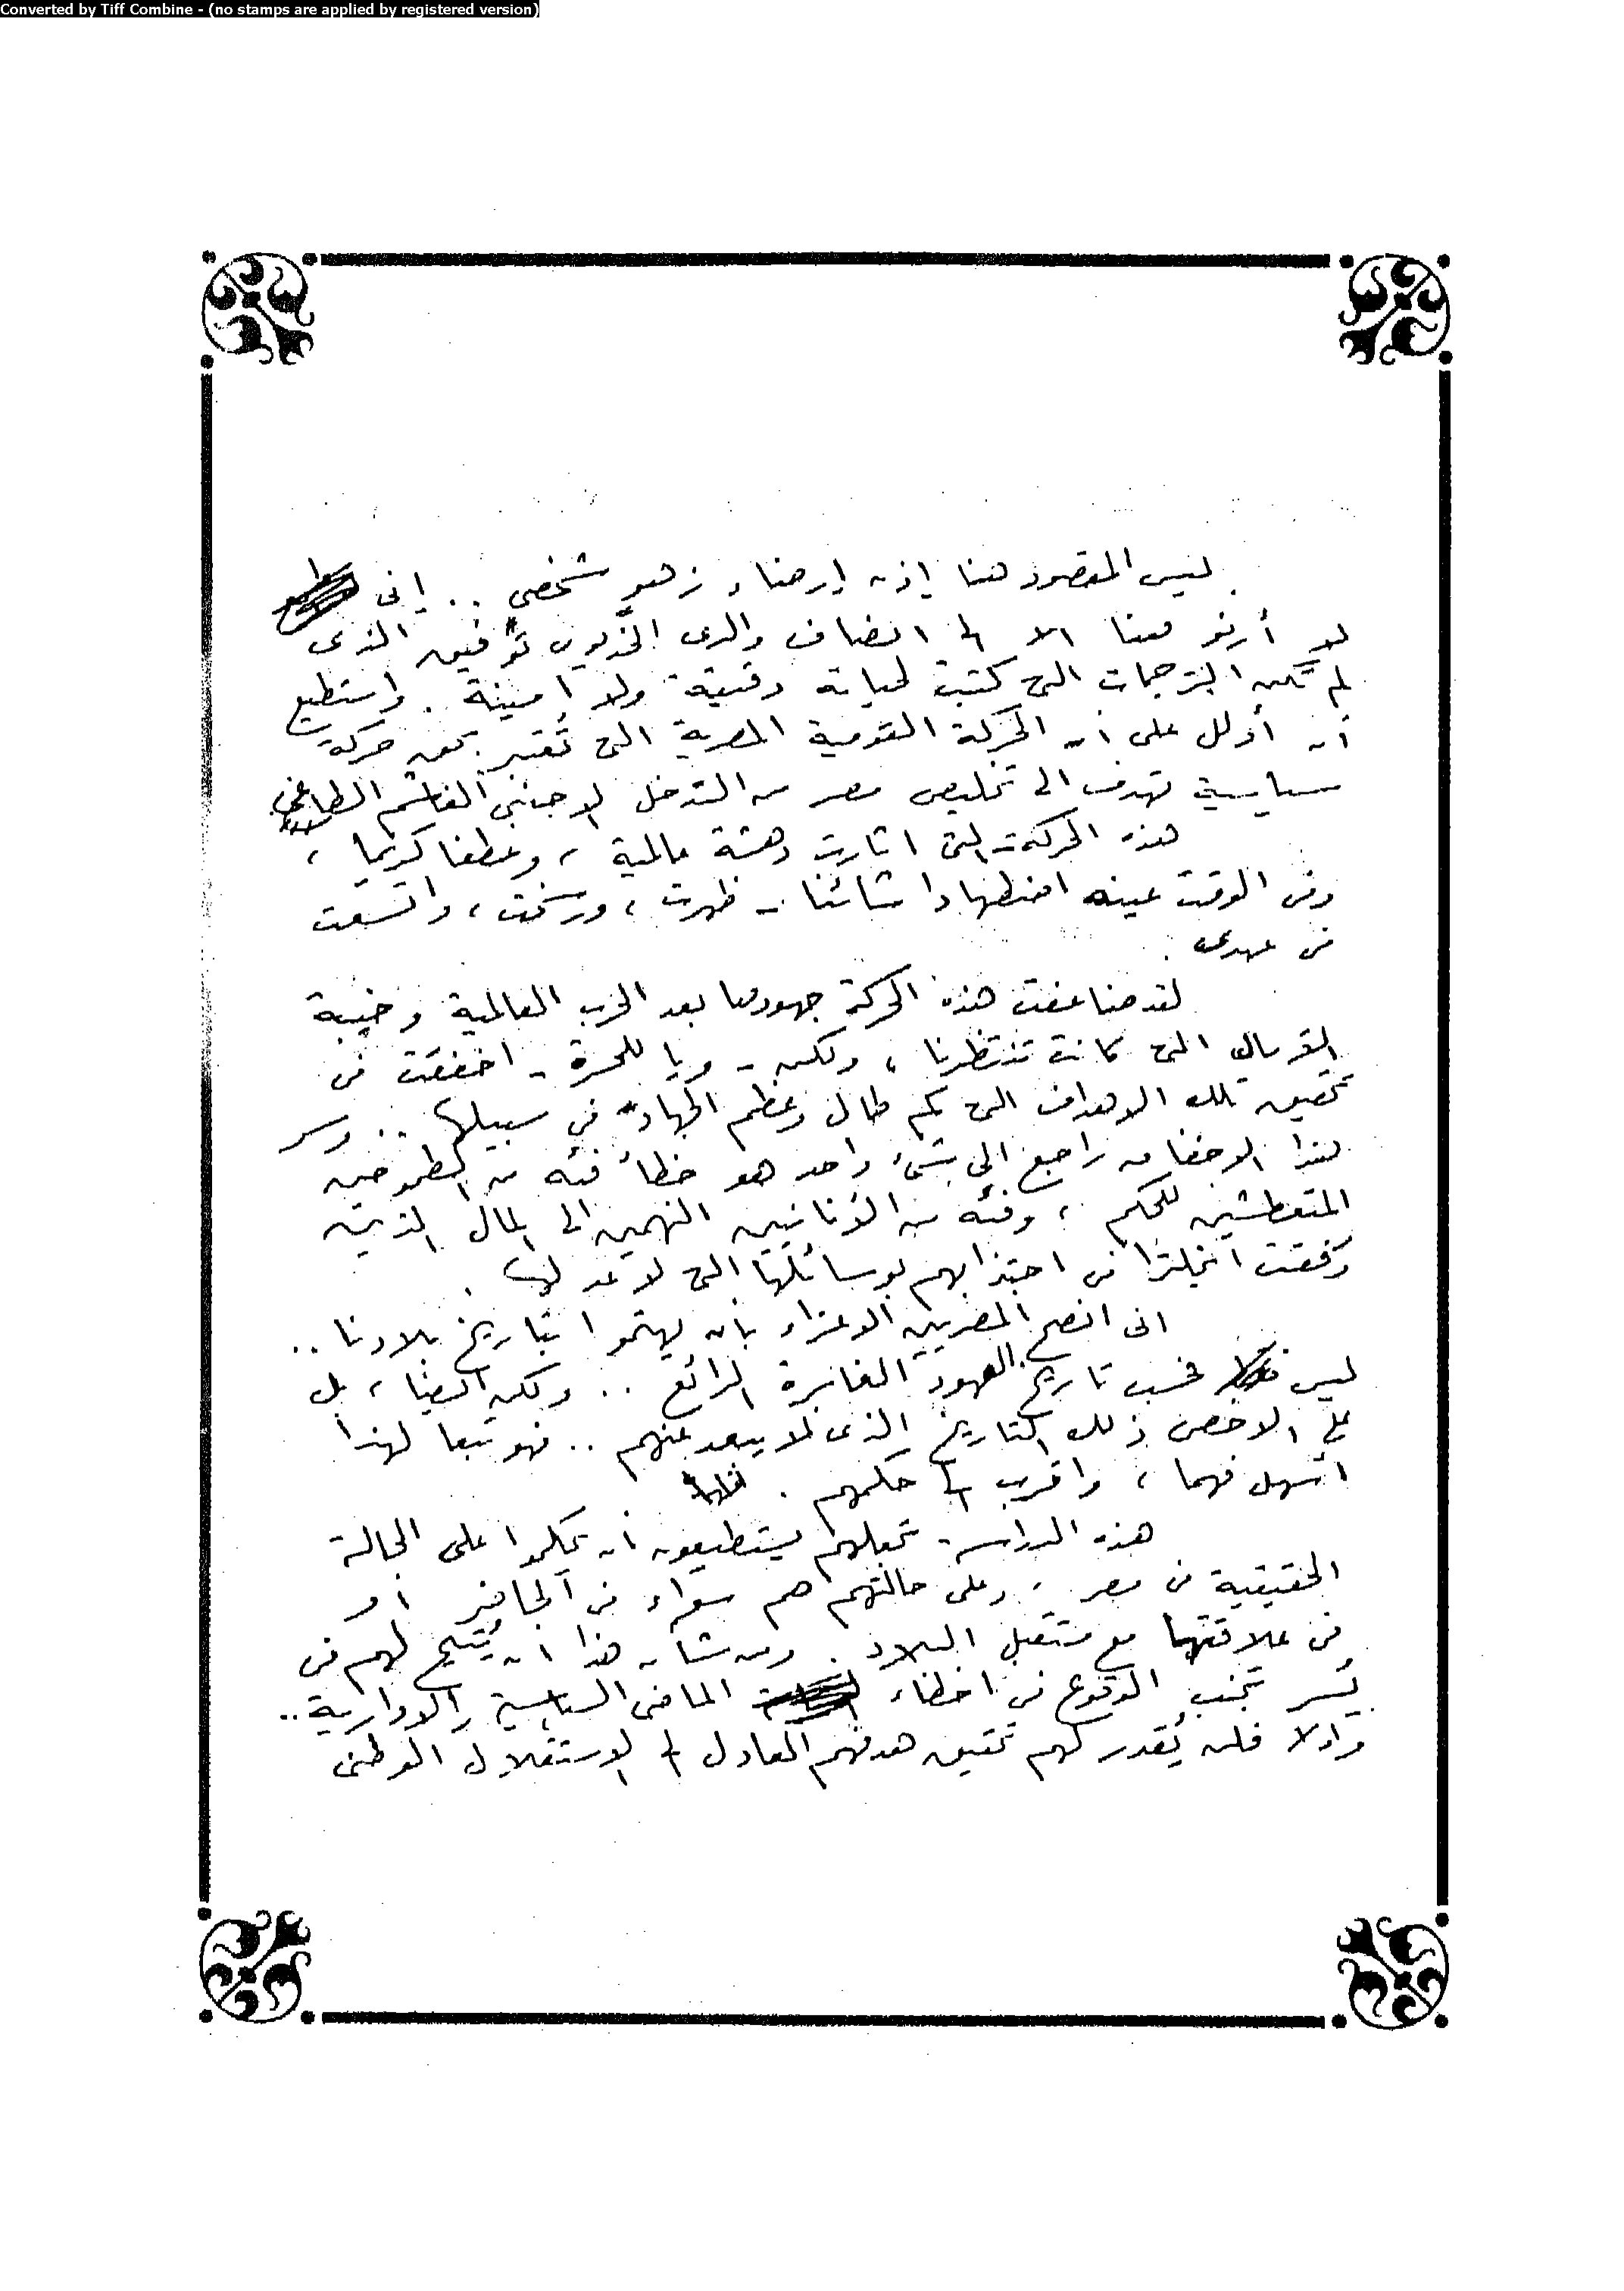 Converted by Tiff Combine - (no stamps are applied by registered version)
ليس المقصود هنا إذن إرضاء زهو شخصى .. إنى
لا أرنو هنا الا الى انصاف والدى الخديوى توفيق الذى
لم تكن الترجمات التى كتبت لحياته دقيقة ولا امينة . واستطيع
أن أدلل على أن الحركة القومية المصرية التى تُعتبر بحق حركة
سياسية تهدف الى تخليص مصر من التدخل الاجنبى الغاشم الطاغى
هذه الحركة التى اثارت دهشة عالمية ، وعطفا كريما ،
وفى الوقت عينه اضطهادا شائنا - ظهرت ، ورسخت ، واتسعت
فى عهدى .
لقد ضاعفت هذه الحركة جهودها بعد الحرب العالمية وخيبة
الآمال التى كانت تنتظرنا ، ولكن - ويا للحسرة - اخفقت فى
تحقيق تلك الاهداف التى كم طال وعظم الجهاد فى سبيلها .. وسر
هذا الاخفاق راجع الى شئ واحد هو خطأ فئه من الطموحين
المتعطشين للحكم ، وفئه من الأنانيين النهمين الى المال الذين
وفقت انجلترا فى اجتذابهم بوسائلها التى لا عد لها .
انى انصح المصريين الاعزاء بأن يهتموا بتاريخ بلادنا ..
ليس فحسب تاريخ العهود الغابرة الرائع .. ولكن ايضا ، بل
على الاخص ذلك التاريخ الذى لا يبعد عنهم .. فهو تبعا لهذا
اسهل فهما ، واقرب الى حكمهم .
هذه الدراسة تجعلهم يستطيعون أن يحكموا على الحالة
الحقيقية فى مصر ، وعلى حالتهم هم سواء فى الحاضر أو
فى علاقتها مع مستقبل البلاد . ومن شأن هذا ان يُتيح لهم فى
يُسر تجنب الوقوع فى اخطاء الماضى السياسية والادارية ..
والا فلن يُقدر لهم تحقيق هدفهم العادل الى الاستقلال الوطنى